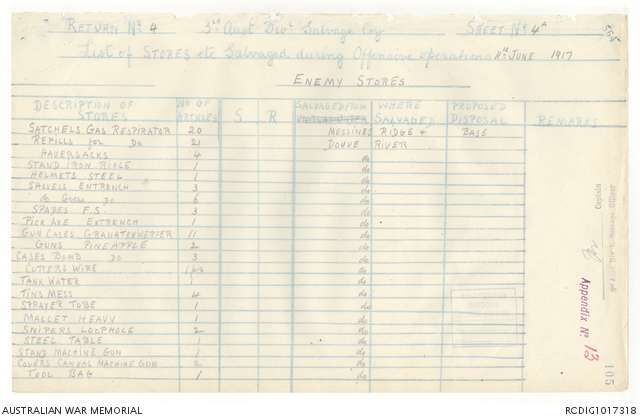 RETURN No 4 3rd Aust Divl Salvage Coy SHEET No 4A
List of STORES etc Salvaged during Offensive operations JUNE 1917
ENEMY STORES
DESCRIPTION OF STORES No OF ARTICLES S R SALVAGED FROM WHERE SALVAGED PROPOSED DISPOSAL REMARKS
SATCHELS GAS RESPIRATOR 20 MESSINES RIDGE & BASE
REFILLS for Do 21 DOUVE RIVER
HAVERSACKS 4 do
STAND IRON RIDGE 1 do
HELMETS STEEL 1 do
SHOVELS ENTRENCH 3 do
do do 6 do
SPADES F.S. 3 do
PICK AXE ENTRENCH 1 do
GUN CASES GRANATENWERFER 11 do
GUNS PINEAPPLE 2 do
CASES BOMB DO 3 do
CUTTERS WIRE do
TANK WATER 1 do
TINS MESS 4 do
SPRAYER TUBE 1 do
MALLET HEAVY 1 do
SNIPERS LOOPHOLE 2 do
STEEL TABLE 1 do
STAND MACHINE GUN 1 do
COVERS CANVAS MACHINE GUN 2 do
TOOL BAG 1 do
Captain
Appendix No 13
105
AUSTRALIAN WAR MEMORIAL RCDIG1017318